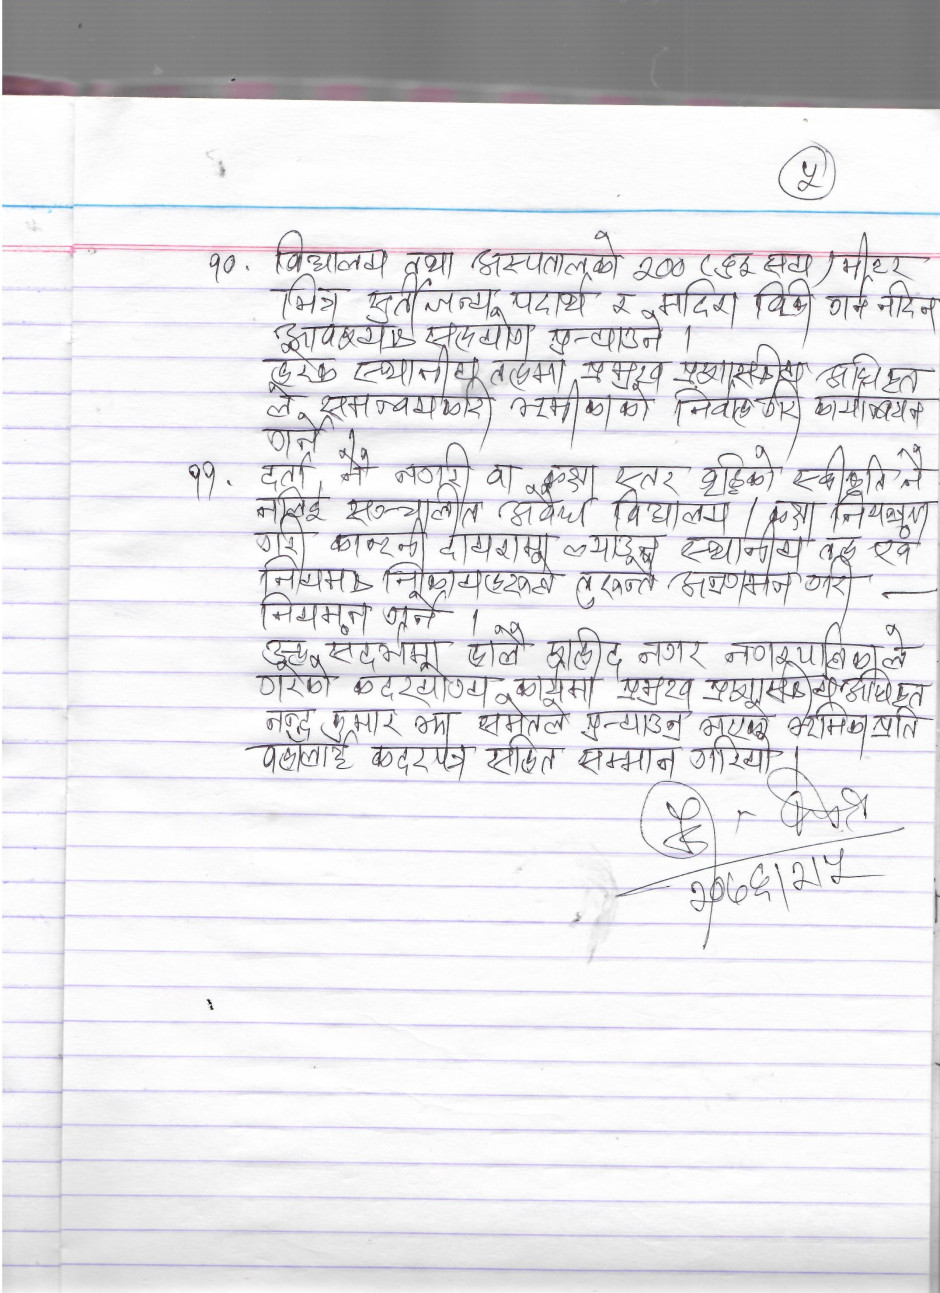 ५
१०. विद्यालय तथा अस्पतालको २०० (दुई सय) मीटर
भित्र सुर्तीजन्य पदार्थ र मदिरा विक्रि गर्न नदिन
आवश्यक सहयोग पुर्‍याउने ।
हरेक स्थानीय तहमा प्रमुख प्रशासकीय अधिकृत
ले समन्वयकारी भूमीकाको निर्वाह गरि कार्यान्वयन
गर्ने ।
११. दर्ता नै नगरी वा कक्षा स्तर वृद्धिको स्वीकृति नै
नलिई सञ्चालीत अवैध विद्यालय / कक्षा नियन्त्रण
गरी कानूनी दायरामा ल्याउन स्थानीय तह एवं
नियामक निकायहरुले तुरुन्त अनुगमन गरि —
नियमन गर्ने ।
उक्त सन्दर्भमा हालै शहीद नगर नगरपालिकाले
गरेको कदरयोग्य कार्यमा प्रमुख प्रशासकीय अधिकृत
नन्द कुमार झा समेतले पुर्‍याउनु भएको भूमिका प्रति
वहाँलाई कदरपत्र सहित सम्मान गरियो ।
२०७६/२/५